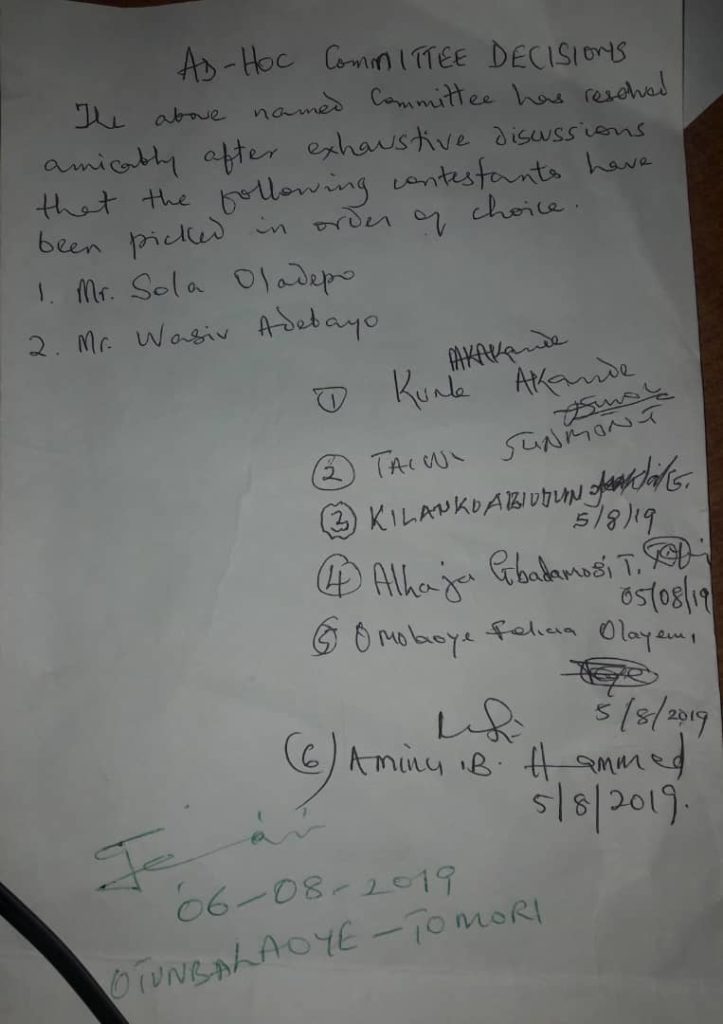 AD-HOC COMMITTEE DECISIONS
The above named Committee has resolved
amicably after exhaustive discussions
that the following contestants have
been picked in order of choice.
1. Mr. Sola Oladepo
2. Mr. Wasiu Adebayo
① Kunle AKande
② TAIWO SUNMONI
③ KILANKO ABIODUN
5/8/19
④ Alhaja Gbadamosi, T.
05/08/19
⑤ Omolaoye Felicia Olayemi
5/8/2019
(6) Aminu .B. Hammed
5/8/2019.
06-08-2019
OTUNBA LAOYE - TOMORI